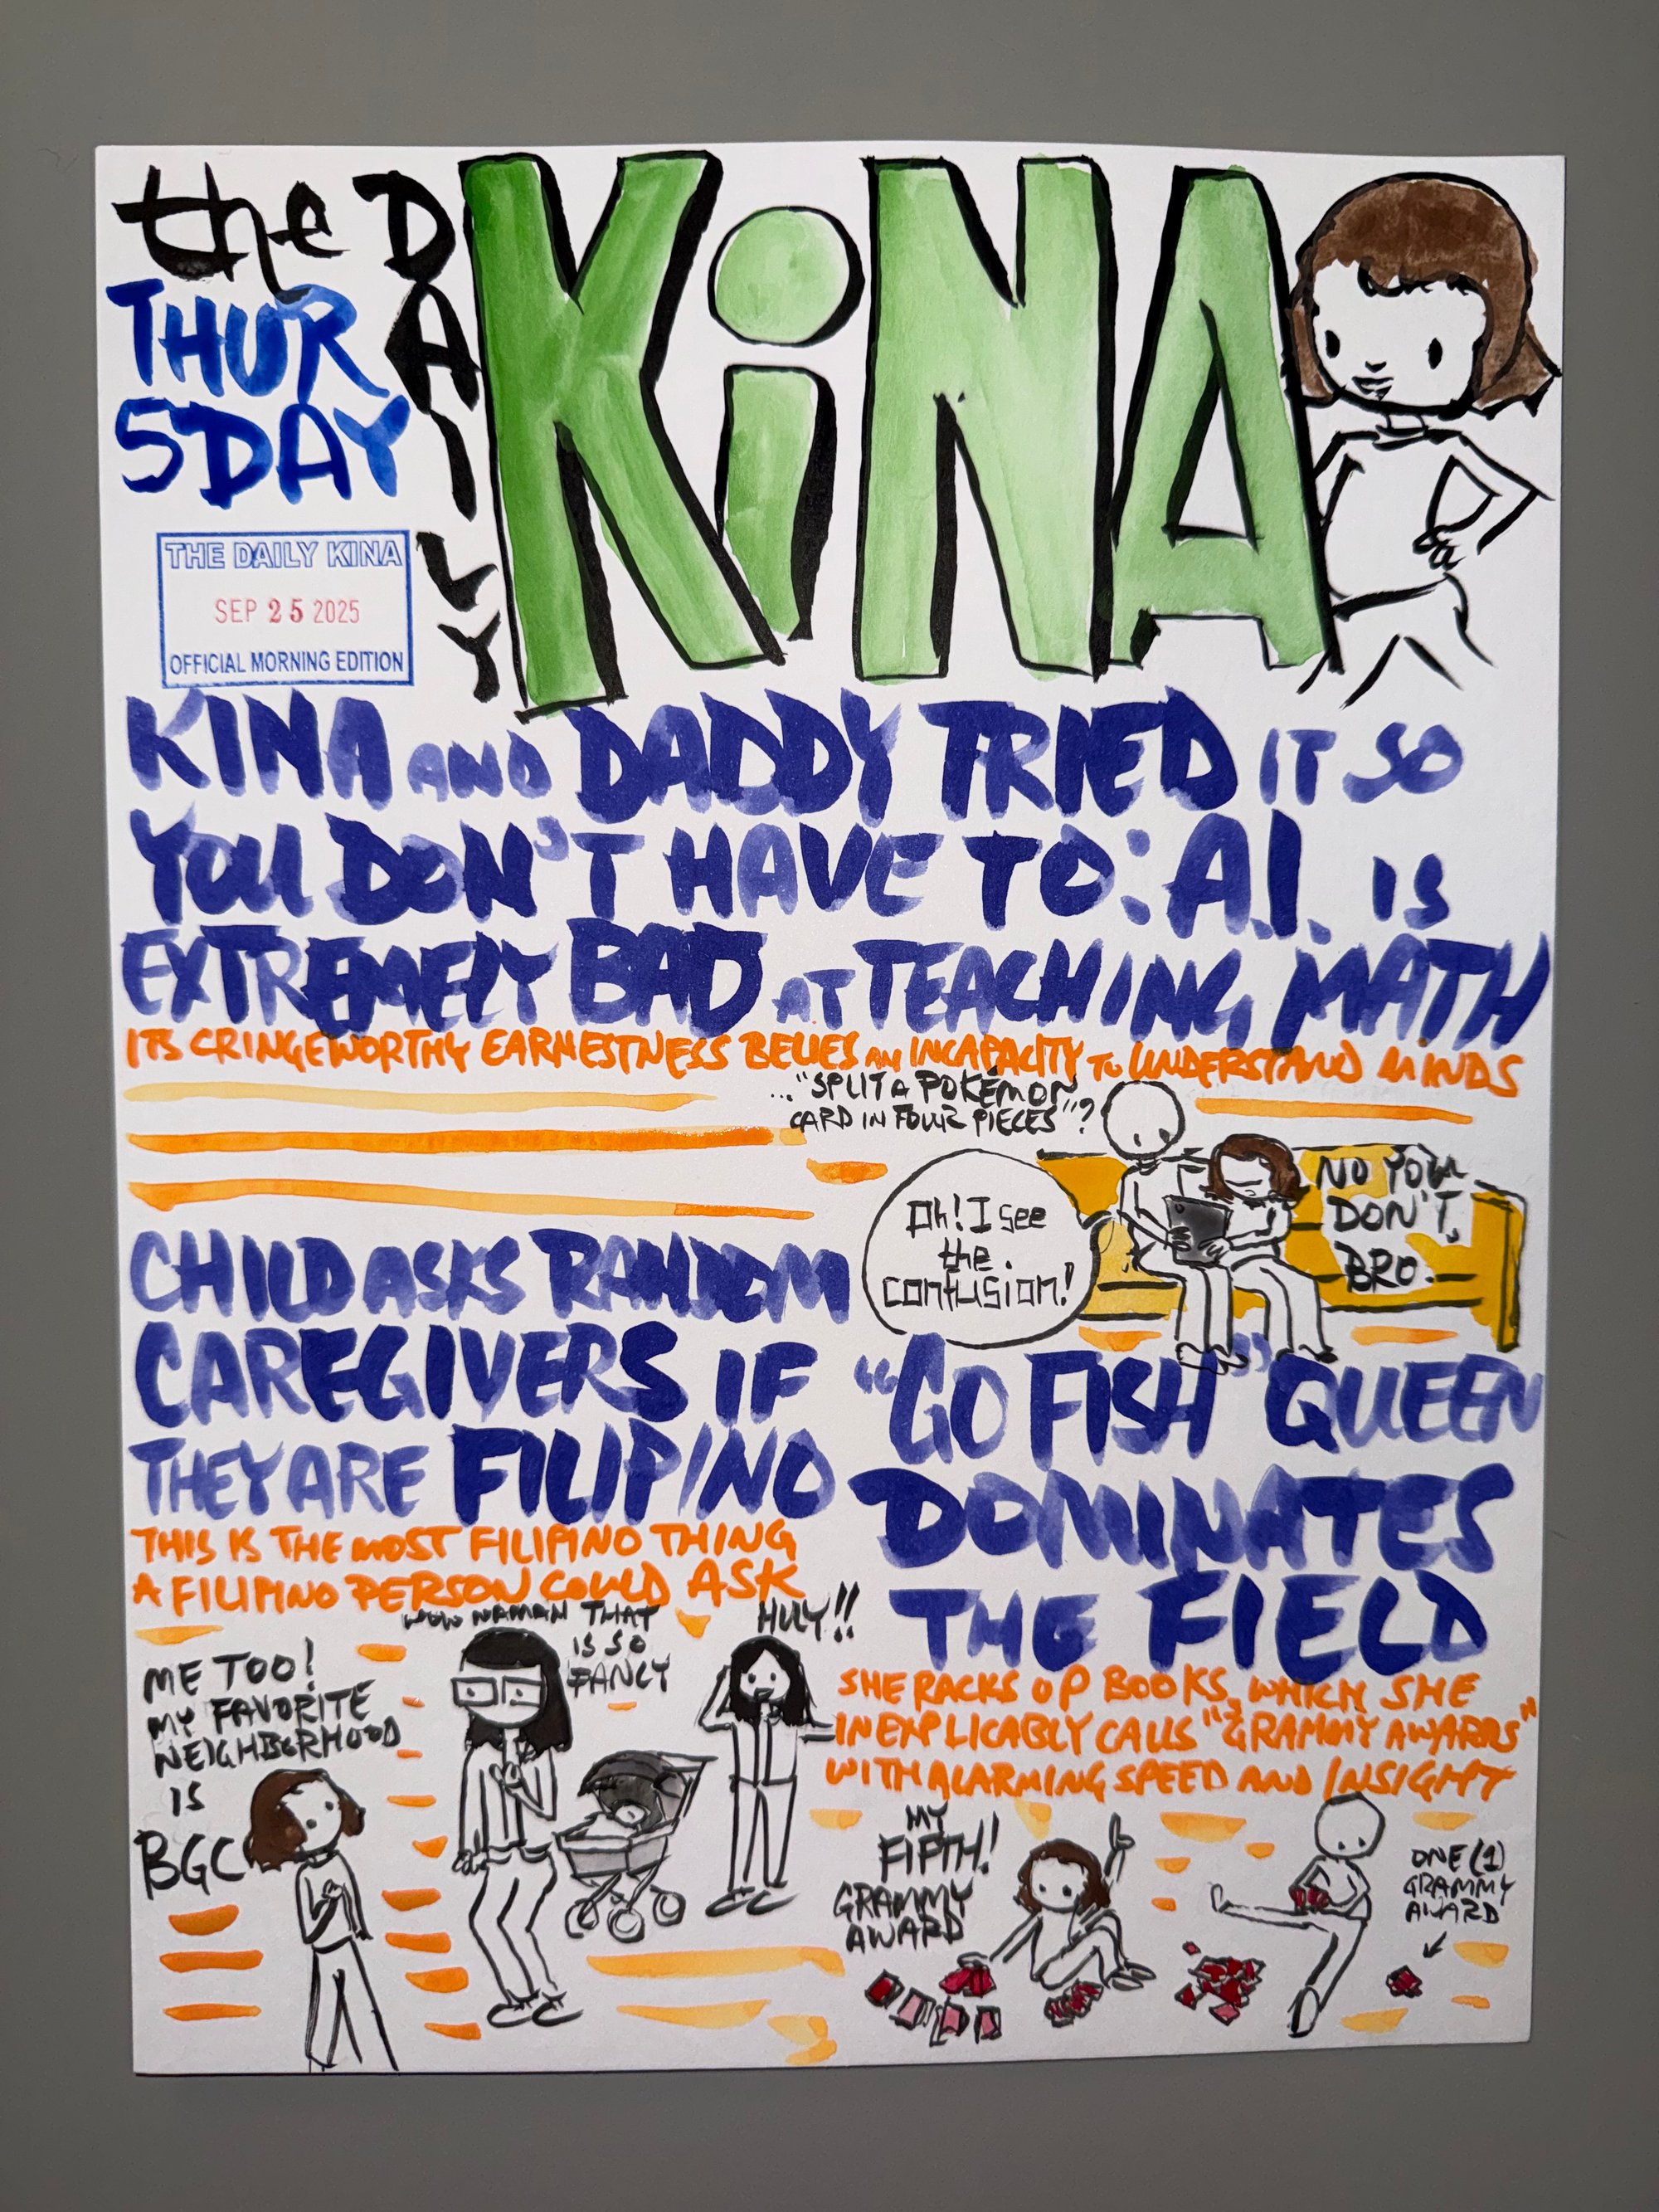 the DAILY
KiNA
THUR
SDAY
THE DAILY KINA
SEP 25 2025
OFFICIAL MORNING EDITION
KINA AND DADDY TRIED IT SO
YOU DON'T HAVE TO: A.I. IS
EXTREMELY BAD AT TEACHING MATH
ITS CRINGEWORTHY EARNESTNESS BELIES AN INCAPACITY TO UNDERSTAND MINDS
..."SPLIT A POKÉMON
CARD IN FOUR PIECES"?
Oh! I see
the
confusion!
NO YOU
DON'T,
BRO.
CHILD ASKS RANDOM
CAREGIVERS IF
THEY ARE FILIPINO
THIS IS THE MOST FILIPINO THING
A FILIPINO PERSON COULD ASK
ME TOO!
MY FAVORITE
NEIGHBORHOOD
IS
BGC
WOW NAMAN THAT
IS SO
FANCY
HUY!!
"GO FISH" QUEEN
DOMINATES
THE FIELD
SHE RACKS UP BOOKS, WHICH SHE
INEXPLICABLY CALLS "GRAMMY AWARDS"
WITH ALARMING SPEED AND INSIGHT
MY
FIFTH!
GRAMMY
AWARD
ONE (1)
GRAMMY
AWARD